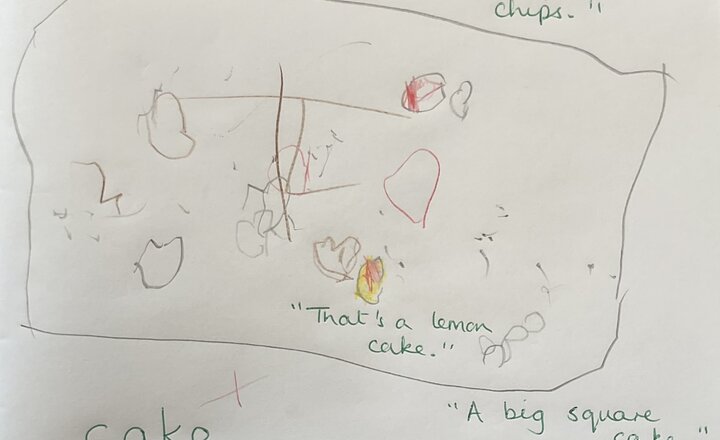 chips."
"That's a lemon
cake."
"A big square
cake."
cake